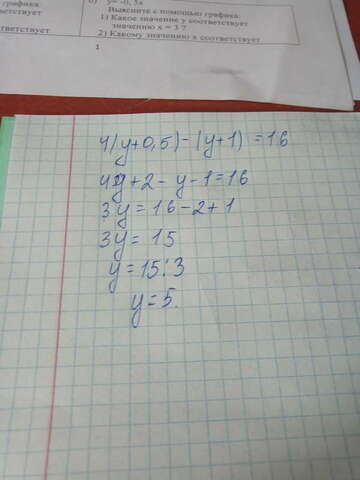 графика
ветствует
ветствует
б) y= -0, 3x
Выясните с помощью графика:
1) Какое значение у соответствует
значению x = 3 ?
2) Какому значению х соответствует
1
4(y+0,5)-(y+1)=16
4y+2-y-1=16
3y=16-2+1
3y=15
y=15:3
y=5.